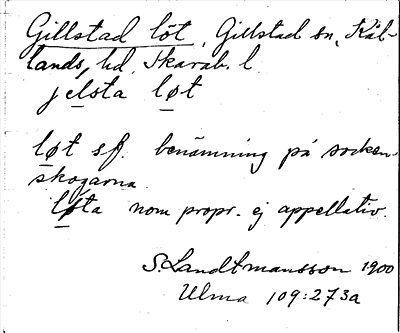 Gillstad löt, Gillstad sn, Kål-
lands hd. Skarab. l.
jelsta løt
løt sf. benämning på socken-
skogarna
løta nom propr. ej appellativ.
S. Landtmansson 1900
Ulma 109:273a